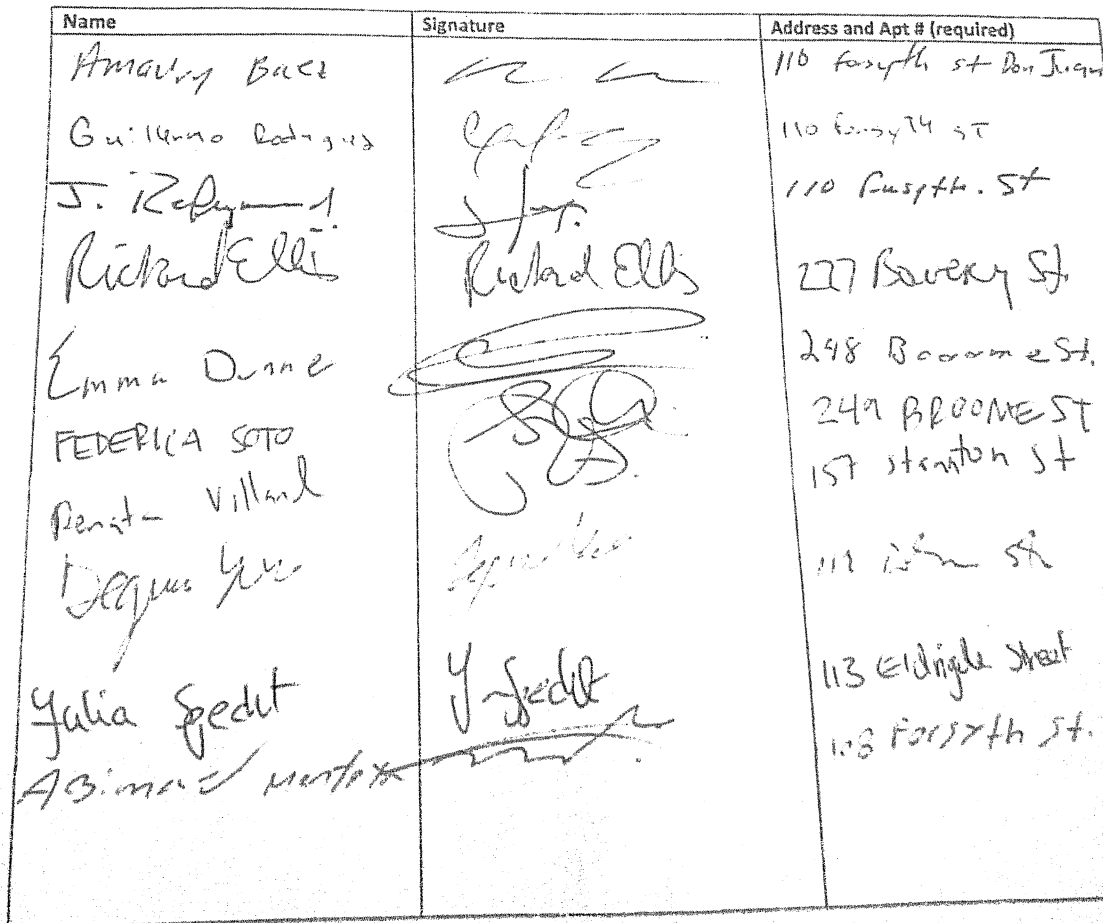 Name Signature Address and Apt # (required)
Amaury Baez 110 forsyth st Don Juan
Guillermo Rodriguez 110 Forsyth ST
J. 110 Forsyth. St
Richard Ellis Richard Ellis 227 Bowery St
Emma Dunne 248 Booome St.
FEDERICA SOTO 249 BROOME ST
Renata Villard 157 Stanton St
Dequn Yu St
Yulia Specht Y Specht 113 Eldrigde Street
108 Forsyth St.